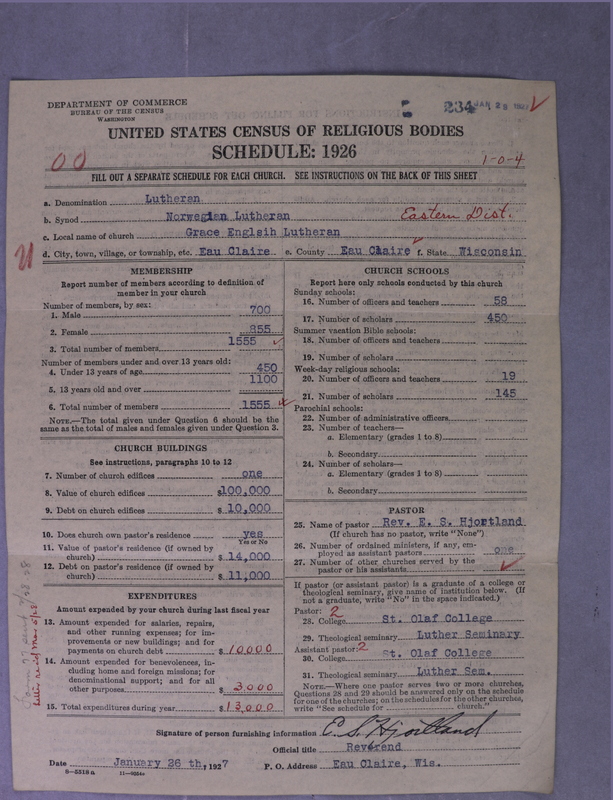 DEPARTMENT OF COMMERCE
BUREAU OF THE CENSUS
WASHINGTON
234 JAN 28 1927
UNITED STATES CENSUS OF RELIGIOUS BODIES
SCHEDULE: 1926
00
1-0-4
FILL OUT A SEPARATE SCHEDULE FOR EACH CHURCH. SEE INSTRUCTIONS ON THE BACK OF THIS SHEET
a. Denomination Lutheran
b. Synod Norwegian Lutheran Eastern Dist.
c. Local name of church Grace Englsih Lutheran
d. City, town, village, or township, etc. Eau Claire e. County Eau Claire f. State Wisconsin
MEMBERSHIP
Report number of members according to definition of
member in your church
Number of members, by sex:
1. Male 700
2. Female 855
3. Total number of members 1555
Number of members under and over 13 years old:
4. Under 13 years of age 450
5. 13 years old and over 1100
6. Total number of members 1555
NOTE.—The total given under Question 6 should be the
same as the total of males and females given under Question 3.
CHURCH BUILDINGS
See instructions, paragraphs 10 to 12
7. Number of church edifices one
8. Value of church edifices $100,000
9. Debt on church edifices $10,000
10. Does church own pastor's residence yes
Yes or No
11. Value of pastor's residence (if owned by
church) $14,000
12. Debt on pastor's residence (if owned by
church) $11,000
EXPENDITURES
Amount expended by your church during last fiscal year
13. Amount expended for salaries, repairs,
and other running expenses; for im-
provements or new buildings; and for
payments on church debt $10000
14. Amount expended for benevolences, in-
cluding home and foreign missions; for
denominational support; and for all
other purposes $3,000
15. Total expenditures during year $13,000
CHURCH SCHOOLS
Report here only schools conducted by this church
Sunday schools:
16. Number of officers and teachers 58
17. Number of scholars 450
Summer vacation Bible schools:
18. Number of officers and teachers
19. Number of scholars
Week-day religious schools:
20. Number of officers and teachers 19
21. Number of scholars 145
Parochial schools:
22. Number of administrative officers
23. Number of teachers—
a. Elementary (grades 1 to 8)
b. Secondary
24. Number of scholars—
a. Elementary (grades 1 to 8)
b. Secondary
PASTOR
25. Name of pastor Rev. E. S. Hjortland
(If church has no pastor, write "None")
26. Number of ordained ministers, if any, em-
ployed as assistant pastors one
27. Number of other churches served by the
pastor or his assistants
If pastor (or assistant pastor) is a graduate of a college or
theological seminary, give name of institution below. (If
not a graduate, write "No" in the space indicated.)
Pastor: 2
28. College St. Olaf College
29. Theological seminary Luther Seminary
Assistant pastor: 2
30. College St. Olaf College
31. Theological seminary Luther Sem.
NOTE.—Where one pastor serves two or more churches,
Questions 28 and 29 should be answered only on the schedule
for one of the churches; on the schedules for the other churches,
write "See schedule for church."
Signature of person furnishing information E. S. Hjortland
Official title Reverend
Date January 26 th, 1927 P. O. Address Eau Claire, Wis.
8-5318a